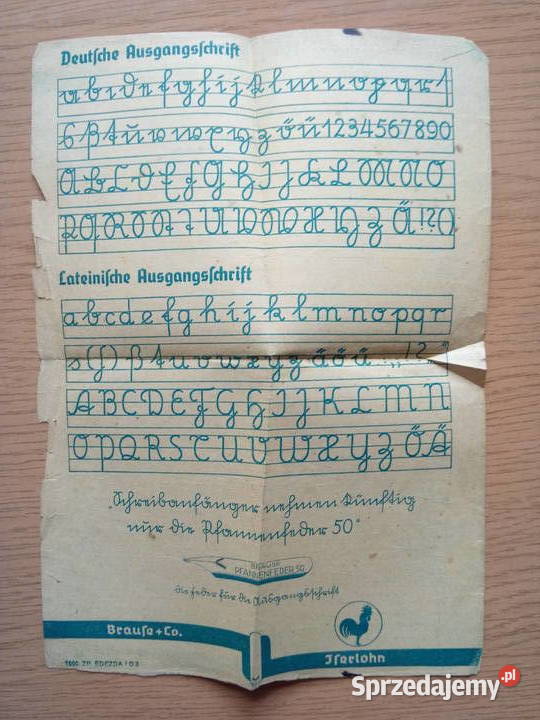 Deutsche Ausgangsschrift
a b c d e f g h i j k l m n o p q r ſ
s ß t u v w x y z ö ü 1 2 3 4 5 6 7 8 9 0
A B C D E F G H I J K L M N O
P Q R S St T U V W X Y Z Ä ! ? ( )
Lateinische Ausgangsschrift
a b c d e f g h i j k l m n o p q r
s (ſ) ß t u v w x y z ä ö ü . , ! ? „ “
A B C D E F G H I J K L M N
O P Q R S T U V W X Y Z Ö Ä
„Schreibanfänger nehmen künftig
nur die Pfannenfeder 50“
PFANNENFEDER 50
die Feder für die Ausgangsschrift
Brause + Co.
Iserlohn
Sprzedajemy.pl